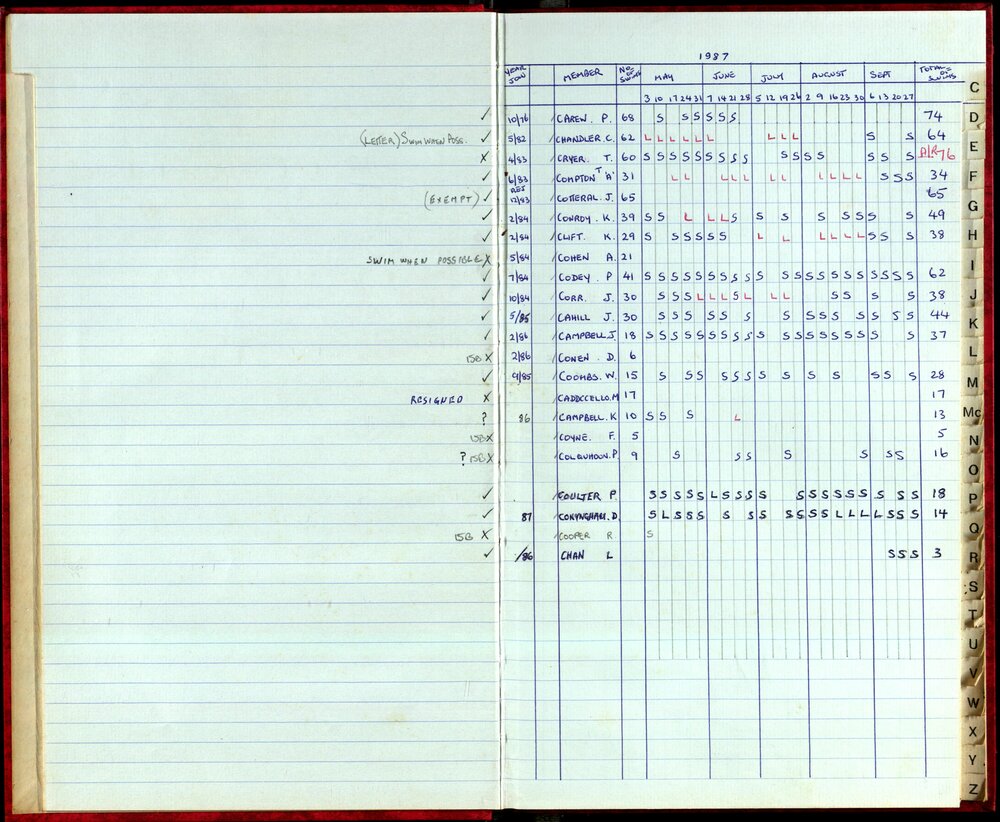 1987
YEAR JOIN MEMBER No. OF SWIMS MAY JUNE JULY AUGUST SEPT TOTAL OF SWIMS
3 10 17 24 31 7 14 21 28 5 12 19 26 2 9 16 23 30 6 13 20 27
✓ 10/76 CAREN. P. 68 S S S S S S 74
(LETTER) SWIM WHEN POSS. ✓ 5/82 CHANDLER C. 62 L L L L L L L L L S S 64
X 4/83 CRYER. T. 60 S S S S S S S S S S S S S S S S A/R 76
✓ 6/83 COMPTON T 'A' 31 L L L L L L L L L L L S S S 34
(EXEMPT) ✓ RES 12/83 COTTERAL. J. 65 65
✓ 2/84 CONROY. K. 39 S S L L L S S S S S S S S 49
✓ 2/84 CLIFT. K. 29 S S S S S S L L L L L L S S S 38
SWIM WHEN POSSIBLE X 5/84 COHEN A. 21
✓ 7/84 CODEY. P 41 S S S S S S S S S S S S S S S S S S S S S 62
✓ 10/84 CORR. J. 30 S S S L L L S L L L S S S S 38
✓ 5/85 CAHILL J. 30 S S S S S S S S S S S S S S S 44
✓ 2/86 CAMPBELL J. 18 S S S S S S S S S S S S S S S S S S S 37
ISB X 2/86 CONEN. D. 6
✓ 9/85 COOMBS. W. 15 S S S S S S S S S S S S S 28
RESIGNED X CADDCCELLO. M 17 17
? 86 CAMPBELL. K 10 S S S L 13
ISB X COYNE. F. 5 5
? ISB X COLQUHOUN. P. 9 S S S S S S S 16
✓ COULTER P. S S S S S L S S S S S S S S S S S S S S 18
✓ 87 CONYNGHAM. D. S L S S S S S S S S S S L L L L S S S 14
ISB X COOPER R S
✓ /86 CHAN L S S S 3
C
D
E
F
G
H
I
J
K
L
M
Mc
N
O
P
Q
R
S
T
U
V
W
X
Y
Z